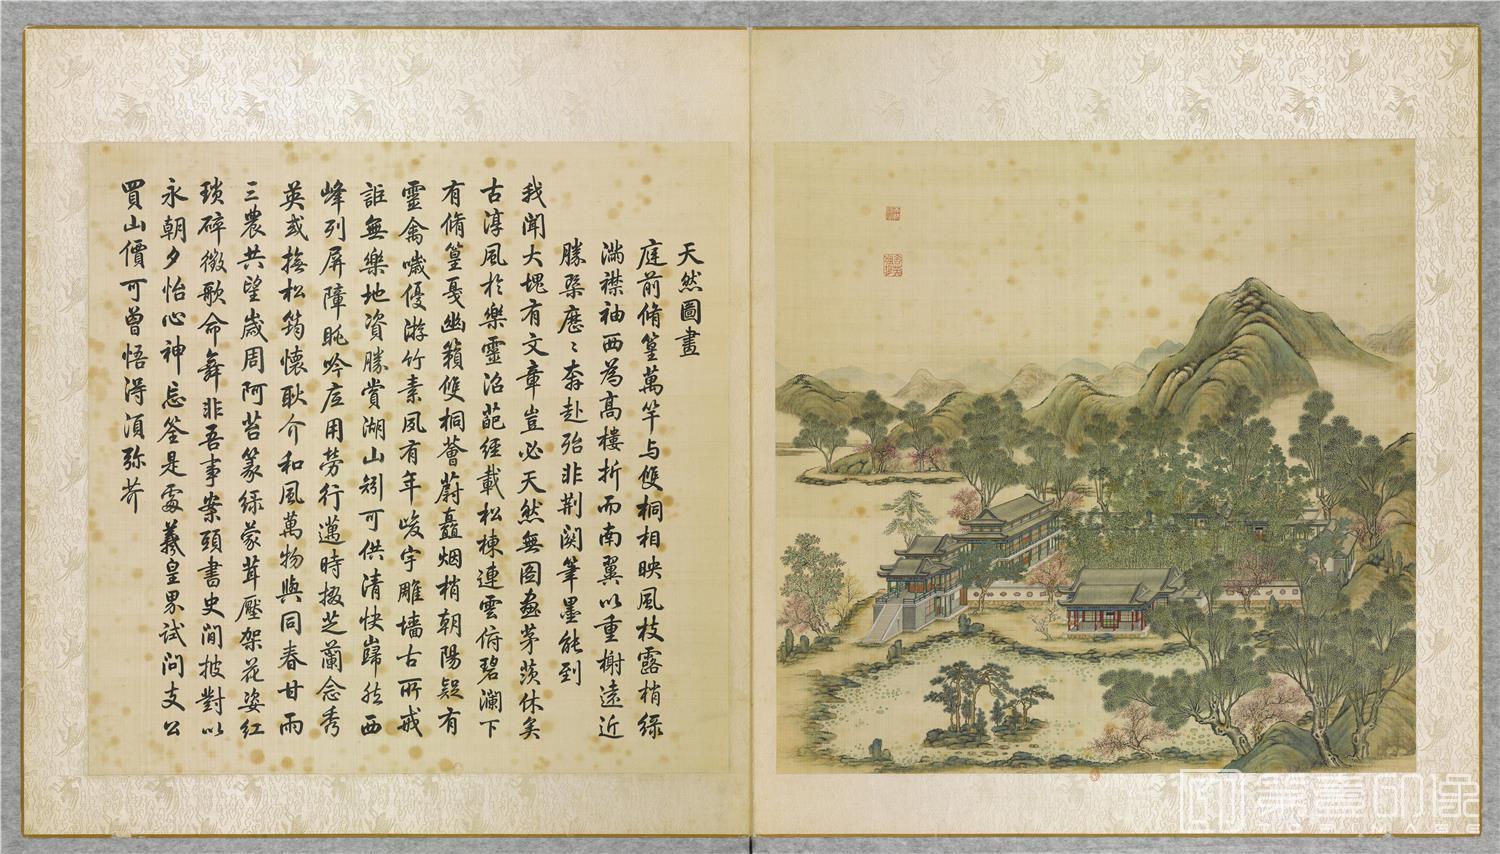 天然圖畫
庭前脩篁萬竿与雙桐相映風枝露梢綠
滿襟袖西為高樓折而南翼以重榭遠近
勝槩歷〻奔赴殆非荆関筆墨能到
我聞大塊有文章豈必天然無圖畫茅茨休矣
古淳風於樂靈沼葩經載松棟連雲俯碧瀾下
有脩篁戞幽籟雙桐薈蔚矗烟梢朝陽疑有
靈禽噦優游竹素夙有年峻宇雕墻古所戒
詎無樂地資勝賞湖山矧可供清快歸然西
峰列屏障眺吟底用勞行邁時掇芝蘭念秀
英或撫松筠懷耿介和風萬物與同春甘雨
三農共望歲周阿苔篆綠蒙茸壓架花姿紅
瑣碎徵歌命舞非吾事案頭書史閒披對以
永朝夕怡心神忘筌是處羲皇界試問支公
買山價可曾悟得須弥芥